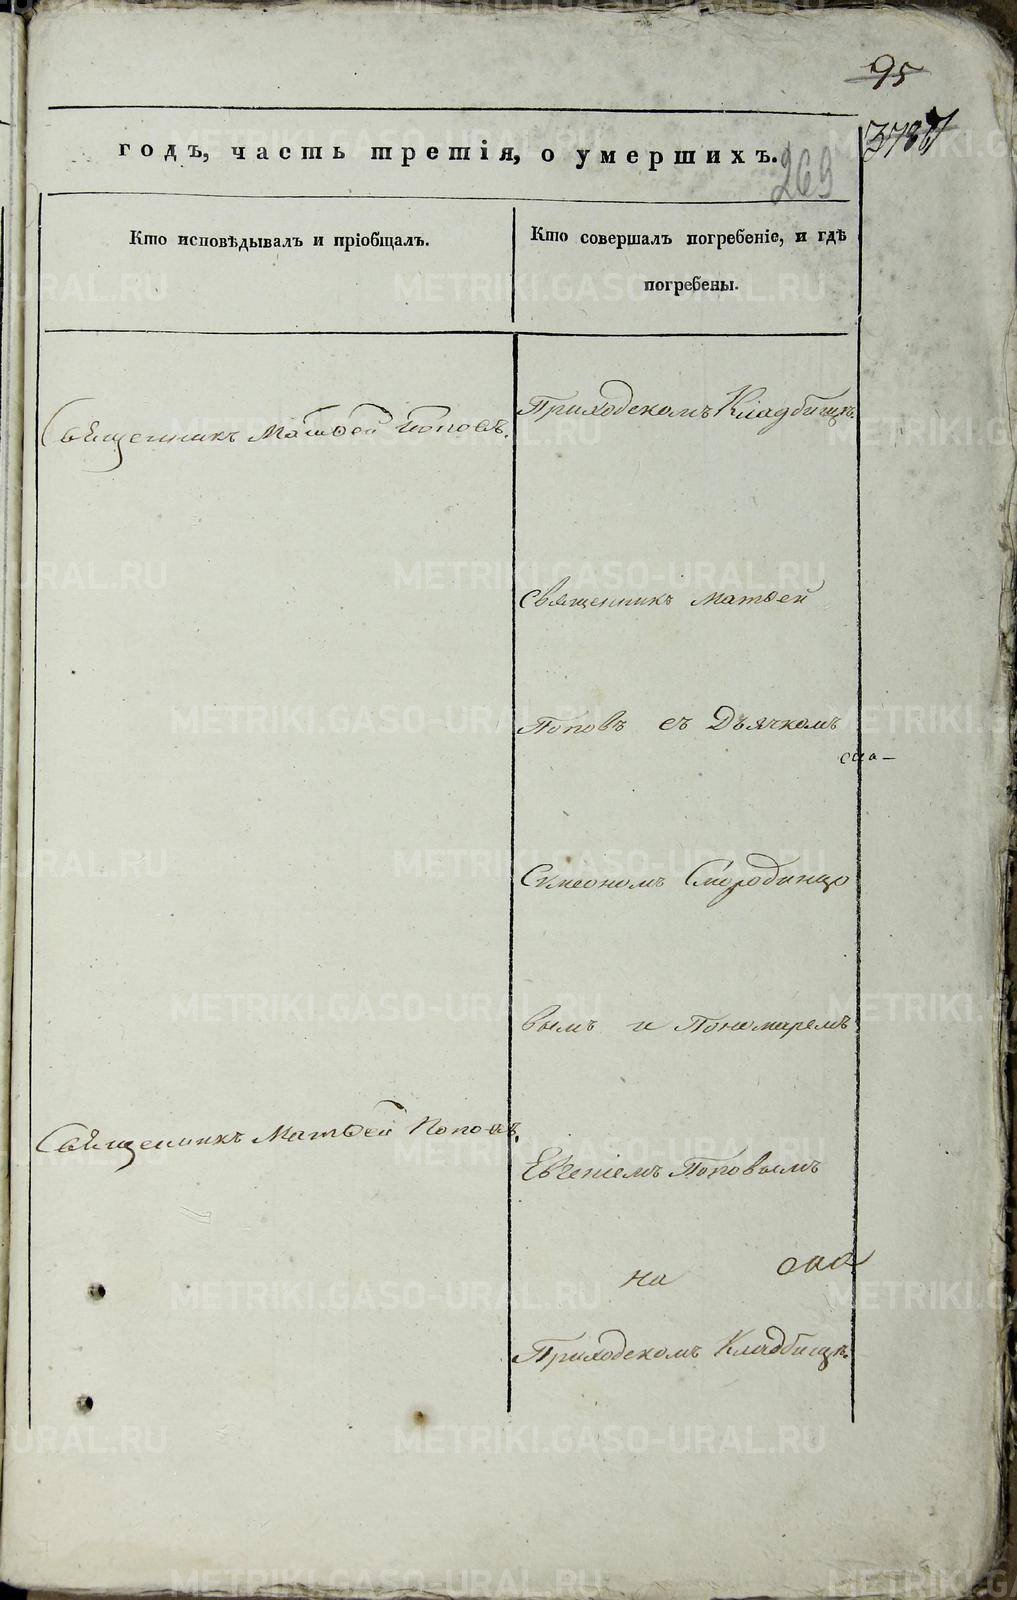 95
269
годъ, часть третія, о умершихъ.
Кто исповѣдывалъ и пріобщалъ.
Кто совершалъ погребеніе, и гдѣ
погребены.
Священникъ Матѳей Поповъ.
Приходскомъ Кладбищѣ.
Священникъ Матѳей
Поповъ съ Дьячкомъ
Симеономъ Смородинцо
вымъ и Пономаремъ
Священникъ Матѳей Поповъ.
Евгеніемъ Поповымъ
на
Приходскомъ Кладбищѣ.
METRIKI.GASO-URAL.RU